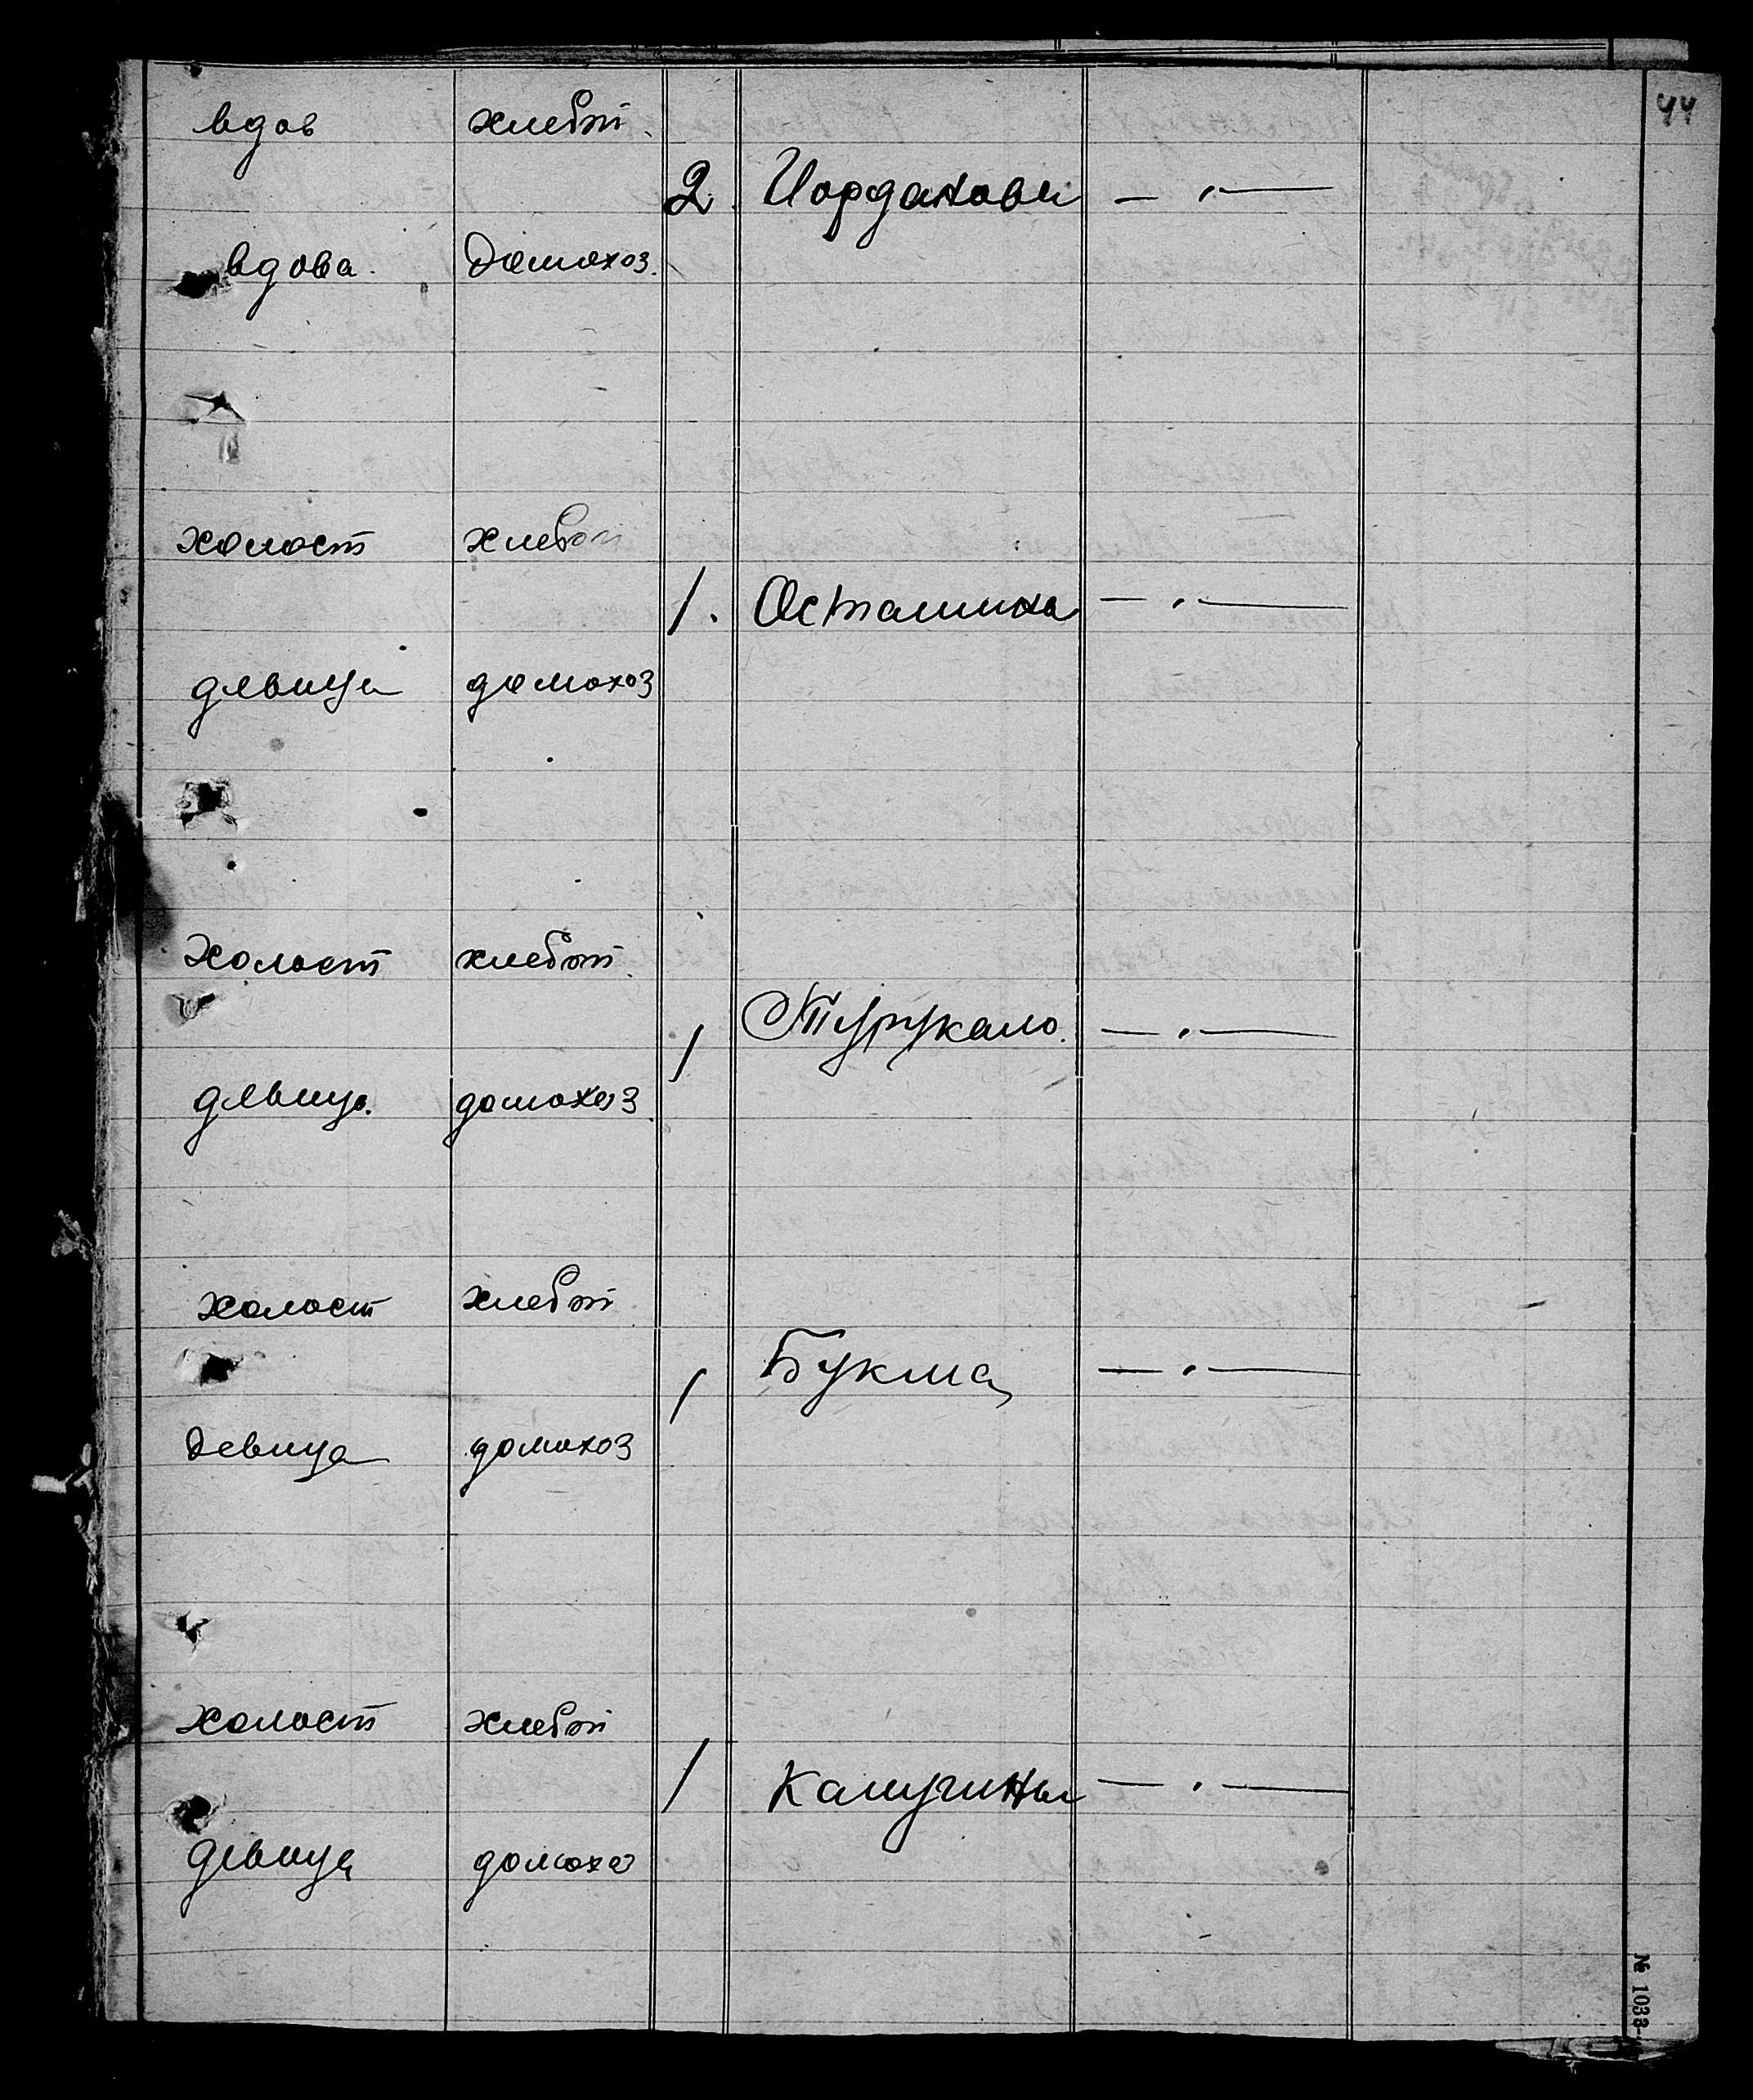 44
вдов хлебоп.
2. Иордановы — „ —
вдова. домохоз.
холост хлебоп
1. Осташина — „ —
девица домохоз
холост хлебоп.
1 Турукало. — „ —
девица. домохоз.
холост хлебоп
1 Букша — „ —
девица домохоз
холост хлебоп
1 Калугины — „ —
девица домохоз
№ 1033-